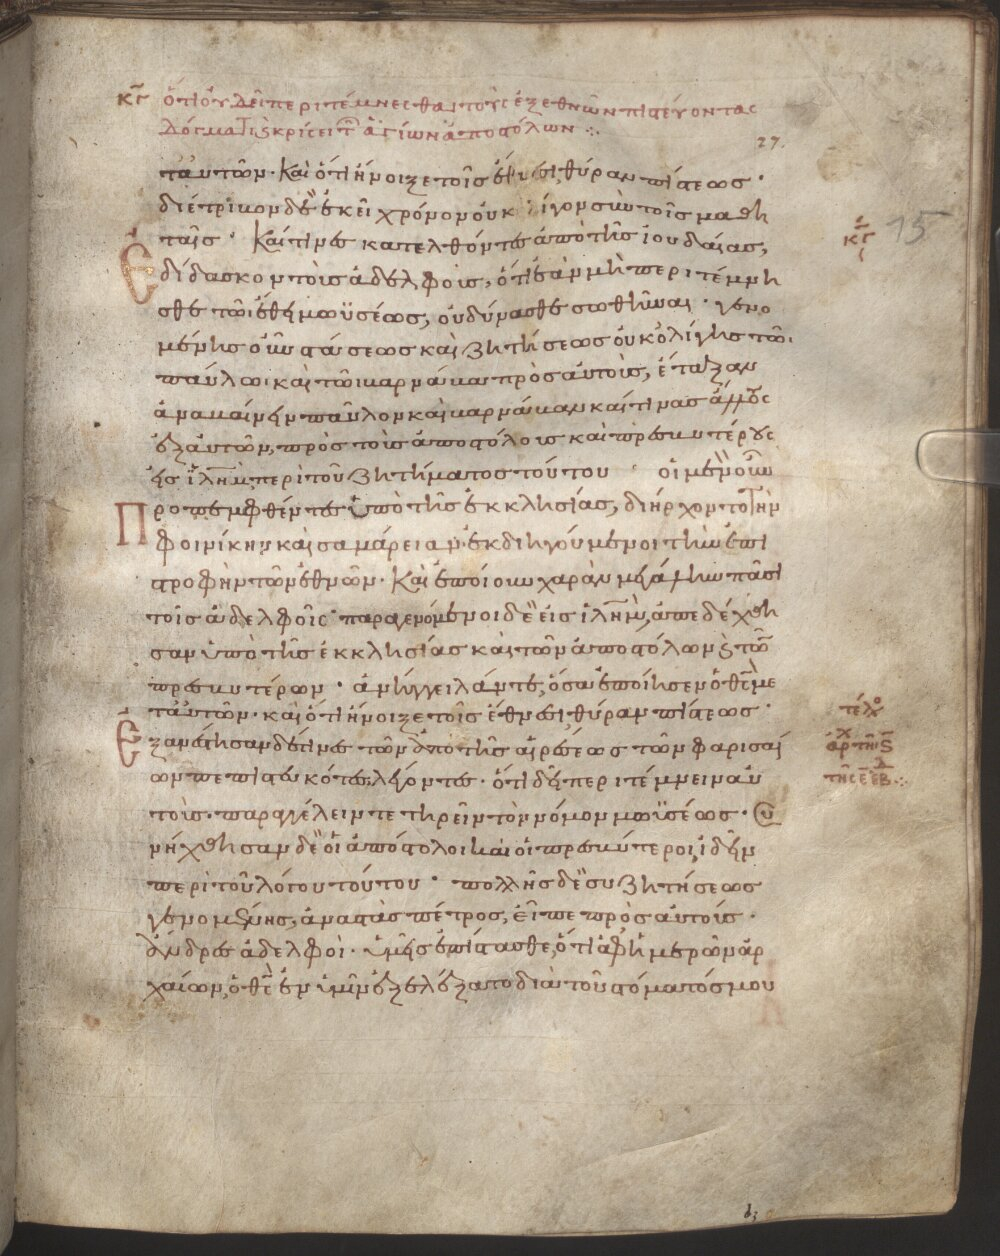 κγ ὅτι οὐ δεῖ περιτέμνεσθαι τοὺς ἐξ ἐθνῶν πιστεύοντας
δόγματι ϛ κρίσει τῶν ἁγίων ἀποστόλων :·
27.
τ' αὐτῶν · Καὶ ὅτι ἤνοιξε τοῖς ἔθνεσι, θύραν πίστεως ·
διέτριβον δὲ ἐκεῖ χρόνον οὐκ ὀλίγον σὺν τοῖς μαθη
κγ 15
ταῖς · Καί τινες κατελθόντες ἀπὸ τῆς ἰουδαίας,
ἐδίδασκον τοὺς ἀδελφοὺς, ὅτι ἐὰν μὴ περιτέμνη
σθε τῶι ἔθει μωϋσέως, οὐ δύνασθε σωθῆναι · γενο
μένης οὖν στάσεως καὶ ζητήσεως οὐκ ὀλίγης τῶ
παύλω καὶ τῶι βαρνάβαι πρὸς αὐτοὺς, ἔταξαν
ἀναβαίνειν παῦλον καὶ βαρνάβαν καί τινας ἄλλους
ἐξ αὐτῶν, πρὸς τοὺς ἀποστόλους καὶ πρεσβυτέρους
εἰς ἱλημ περὶ τοῦ ζητήματος τούτου · οἱ μὲν οὖν
Προπεμφθέντες ὑπὸ τῆς ἐκκλησίας, διήρχοντο τὴν
φοινίκην καὶ σαμάρειαν ἐκδιηγούμενοι τὴν ἐπι
στροφὴν τῶν ἐθνῶν · Καὶ ἐποίουν χαρὰν μεγάλην πᾶσι
τοῖς ἀδελφοῖς · παραγενόμενοι δὲ εἰς ἱλημ, ἀπεδέχθη
σαν ὑπὸ τῆς ἐκκλησίας καὶ τῶν ἀποστόλων ϛ τῶν
πρεσβυτέρων · ἀνήγγειλάν τε, ὅσα ἐποίησεν ὁ θς με
τ' αὐτῶν · καὶ ὅτι ἤνοιξε τοῖς ἔθνεσι, θύραν πίστεως ·
τέλος
Ἐξανέστησαν δέ τινες τῶν ἀπὸ τῆς αἱρέσεως τῶν φαρισαί
ων πεπιστευκότες, λέγοντες · ὅτι δεῖ περιτέμνειν αὐ
τοὺς · παραγγέλειν τε τηρεῖν τὸν νόμον μωϋσέως · Συ
νήχθησαν δὲ οἱ ἀπόστολοι καὶ οἱ πρεσβύτεροι, ἰδεῖν
περὶ τοῦ λόγου τούτου · πολλῆς δὲ συζητήσεως
γενομένης, ἀναστὰς πέτρος, εἶπε πρὸς αὐτούς ·
ἄνδρες ἀδελφοὶ · ὑμεῖς ἐπίστασθε, ὅτι ἀφ' ἡμερῶν ἀρ
χαίων, ὁ θς ἐν ὑμῖν ἐξελέξατο διὰ τοῦ στόματός μου